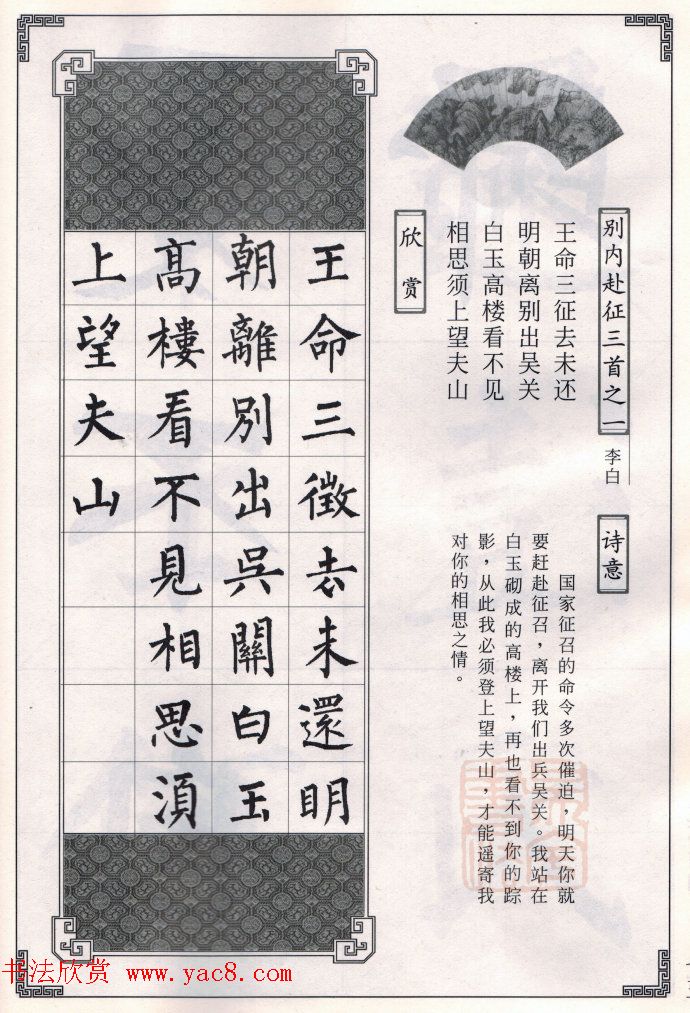 别内赴征三首之一
李白
王命三征去未还
明朝离别出吴关
白玉高楼看不见
相思须上望夫山
欣赏
诗意
国家征召的命令多次催迫，明天你就
要赶赴征召，离开我们出兵吴关。我站在
白玉砌成的高楼上，再也看不到你的踪
影，从此我必须登上望夫山，才能遥寄我
对你的相思之情。
王命三徵去未還明
朝離別出吳關白玉
高樓看不見相思須
上望夫山
书法欣赏 www.yac8.com